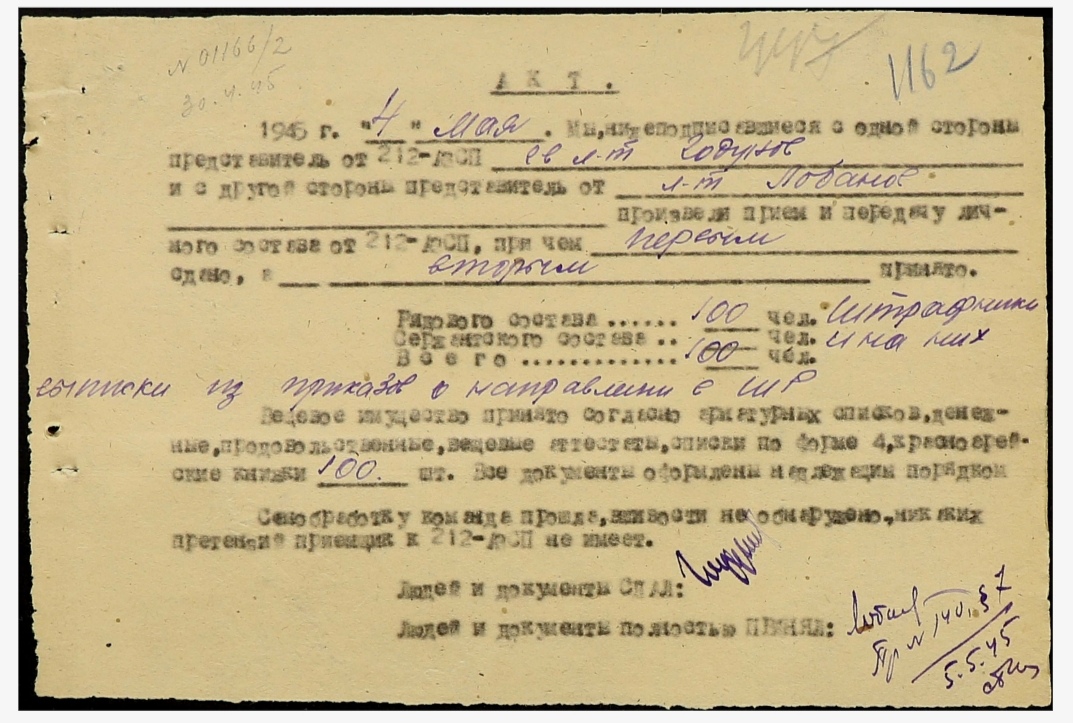 N 01166/2
30.4.45
1162
АКТ.
1945 г. "4" Мая. Мы, нижеподписавшиеся с одной стороны
представитель от 212-АЗСП гв л-т Годунов
и с другой стороны представитель от л-т Лобанов
произвели прием и передачу лич-
ного состава от 212-АЗСП, при чем первым
сдано, а вторым принято.
Рядового состава ...... 100 чел. штрафники
Сержантского состава .. — чел. и на них
Всего ............. 100 чел.
выписки из приказов о направлении в ШР
Вещевое имущество принято согласно арматурных списков, денеж-
ные, продовольственные, вещевые аттестаты, списки по форме 4, красноармей-
ские книжки 100. шт. Все документы оформлены надлежащим порядком
Санобработку команда прошла, вшивости не обнаружено, никаких
претензий приемщик к 212-АЗСП не имеет.
Людей и документы СДАЛ:
Людей и документы полностью ПРИНЯЛ: Лобанов
Пр N 140, § 7
5.5.45